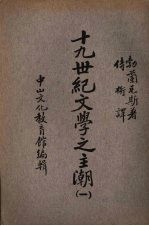 勃蘭兌斯著
侍桁譯
十九世紀文學之主潮
(一)
中山文化教育館編輯